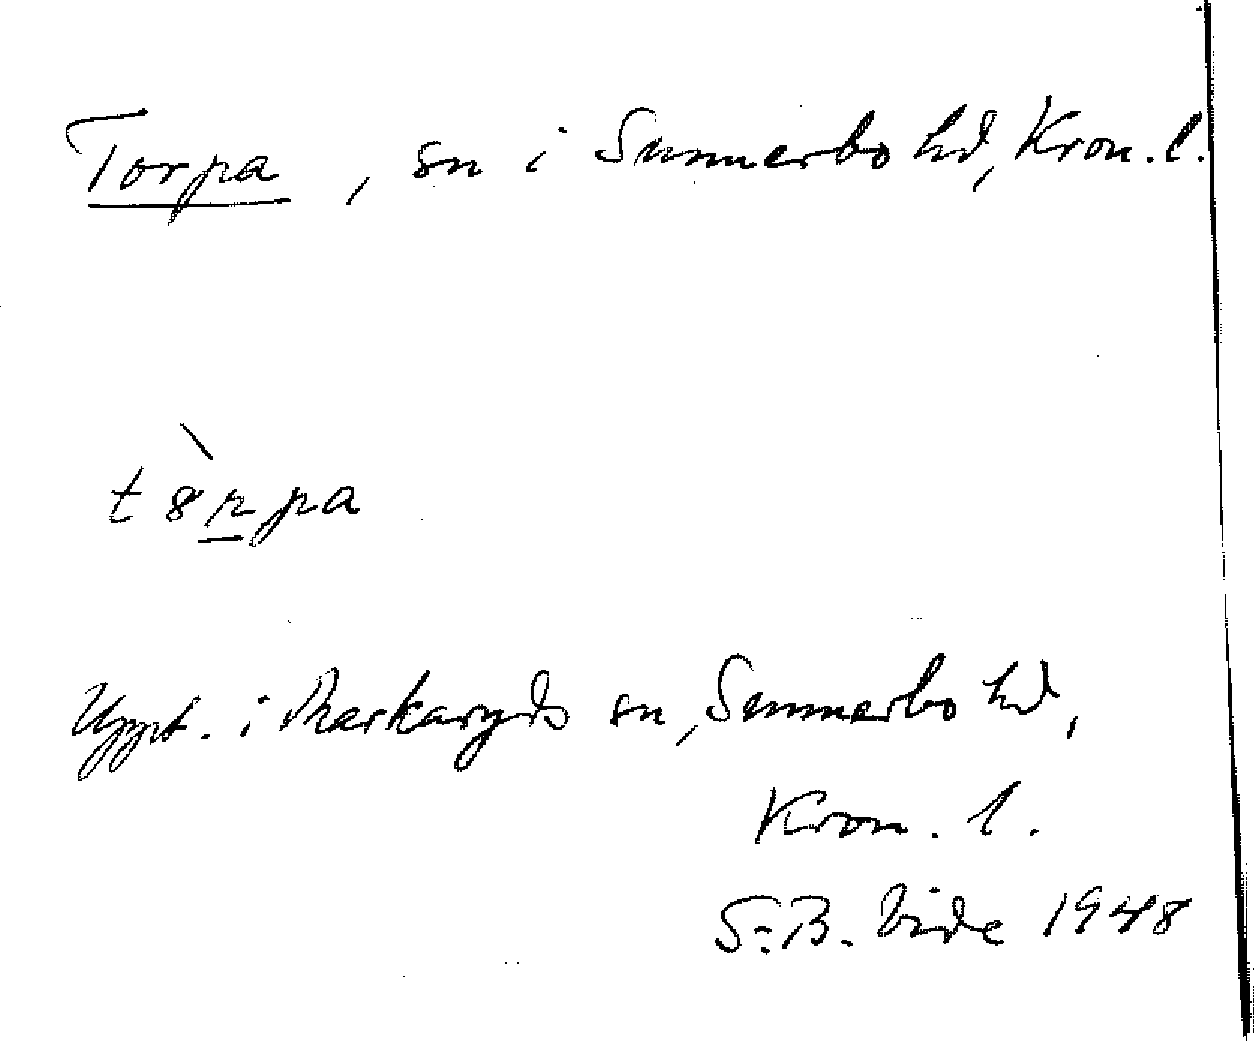 Torpa, sn i Sunnerbo hd, Kron. l.
t8̀r̲pa
Uppt. i Markaryds sn, Sunnerbo hd,
Kron. l.
S:B. Vide 1948